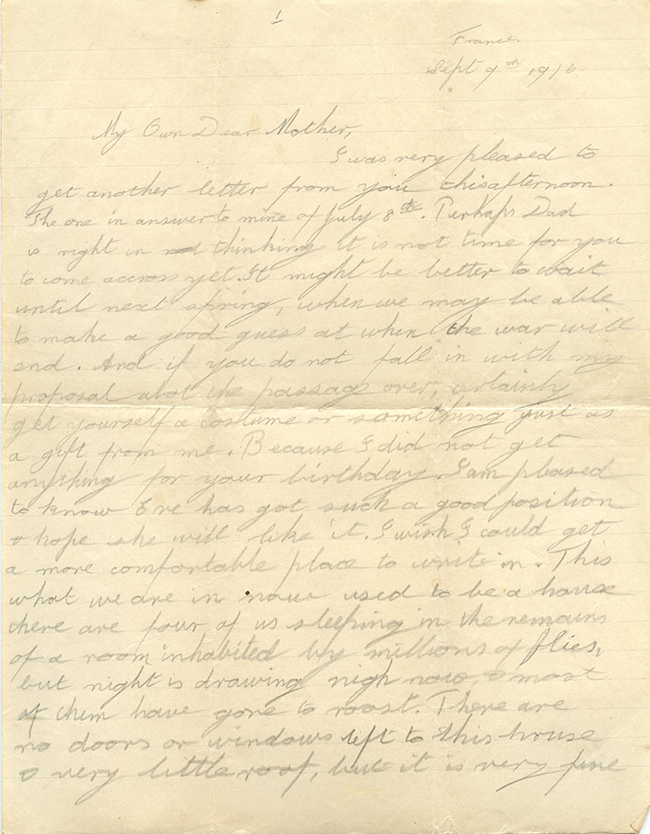 1
France.
Sept 9th 1916
My Own Dear Mother,
I was very pleased to
get another letter from you this afternoon.
The one in answer to mine of July 8th. Perhaps Dad
is right in thinking it is not time for you
to come accross yet. It might be better to wait
until next spring, when we may be able
to make a good guess at when the war will
end. And if you do not fall in with my
proposal abot the passage over, certainly
get yourself a costume or something just as
a gift from me. Because I did not get
anything for your birthday. I am pleased
to know Eve has got such a good position
& hope she will like it. I wish I could get
a more comfortable place to write in. This
what we are in now used to be a house
there are four of us sleeping in the remains
of a room inhabited by millions of flies,
but night is drawing nigh now, & most
of them have gone to roost. There are
no doors or windows left to this house
& very little roof, but it is very fine